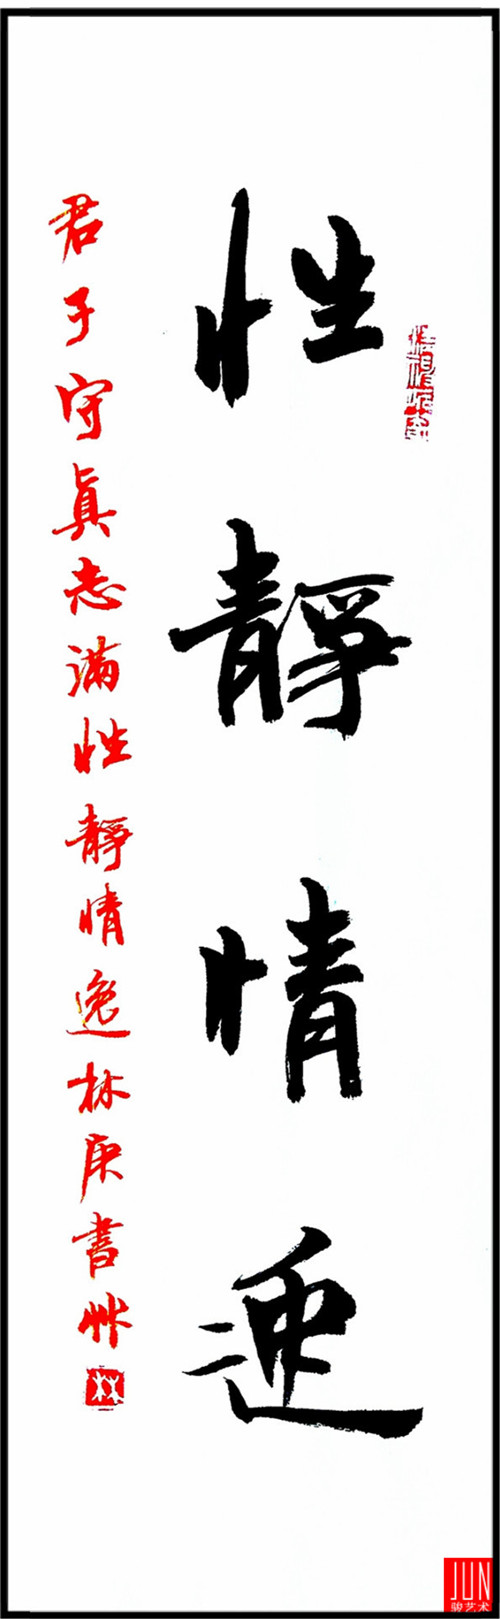 性靜情逸
君子守眞志滿性靜情逸林庚書
JUN
骏艺术